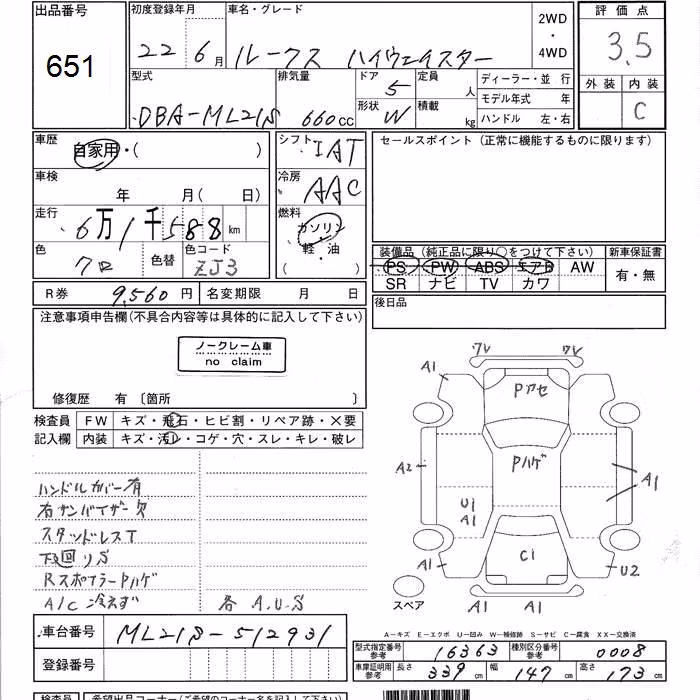 出品番号
651
初度登録年月
22 年 6 月
車名・グレード
ルークス ハイウェイスター
2WD
・
4WD
評価点
3.5
外装 内装
C
型式
DBA-ML21S
排気量
660 cc
ドア 5
形状 W
定員 人
積載 kg
ディーラー・並行
モデル年式 年
ハンドル 左・右
車歴
自家用・( )
シフト
IAT
セールスポイント（正常に機能するものに限ります）
車検
年 月 ( 日)
冷房
AAC
走行
6万1千588 km
燃料
ガソリン
軽・油
( )
色
クロ
色替
色コード
ZJ3
装備品（純正品に限り○をつけて下さい）
PS PW ABS エアB AW
SR ナビ TV カワ
新車保証書
有・無
R券 9,560 円
名変期限 月 日
後日品
注意事項申告欄(不具合内容等は具体的に記入して下さい)
ノークレーム車
no claim
修復歴 有〔箇所 〕
検査員
記入欄
FW キズ・飛石・ヒビ割・リペア跡・×要
内装 キズ・汚レ・コゲ・穴・スレ・キレ・破レ
ハンドルカバー有
右サンバイザー欠
スタッドレスT
下回りS
RスポイラーPハゲ
A/C冷えず
各A.U.S
ワレ ワレ
A1
A1
Pアセ
Pハゲ
A2
A1
U1
A1
C1
A1
A1
U2
A1
スペア
A－キズ E－エクボ U－凹み W－補修跡 S－サビ C－腐食 XX－交換済
車台番号 ML21S-512931
登録番号
型式指定番号
参考
16363
種別区分番号
参考
0008
車庫証明用
参考
長さ 339 cm
幅 147 cm
高さ 173 cm
検査員
希望出品コーナー